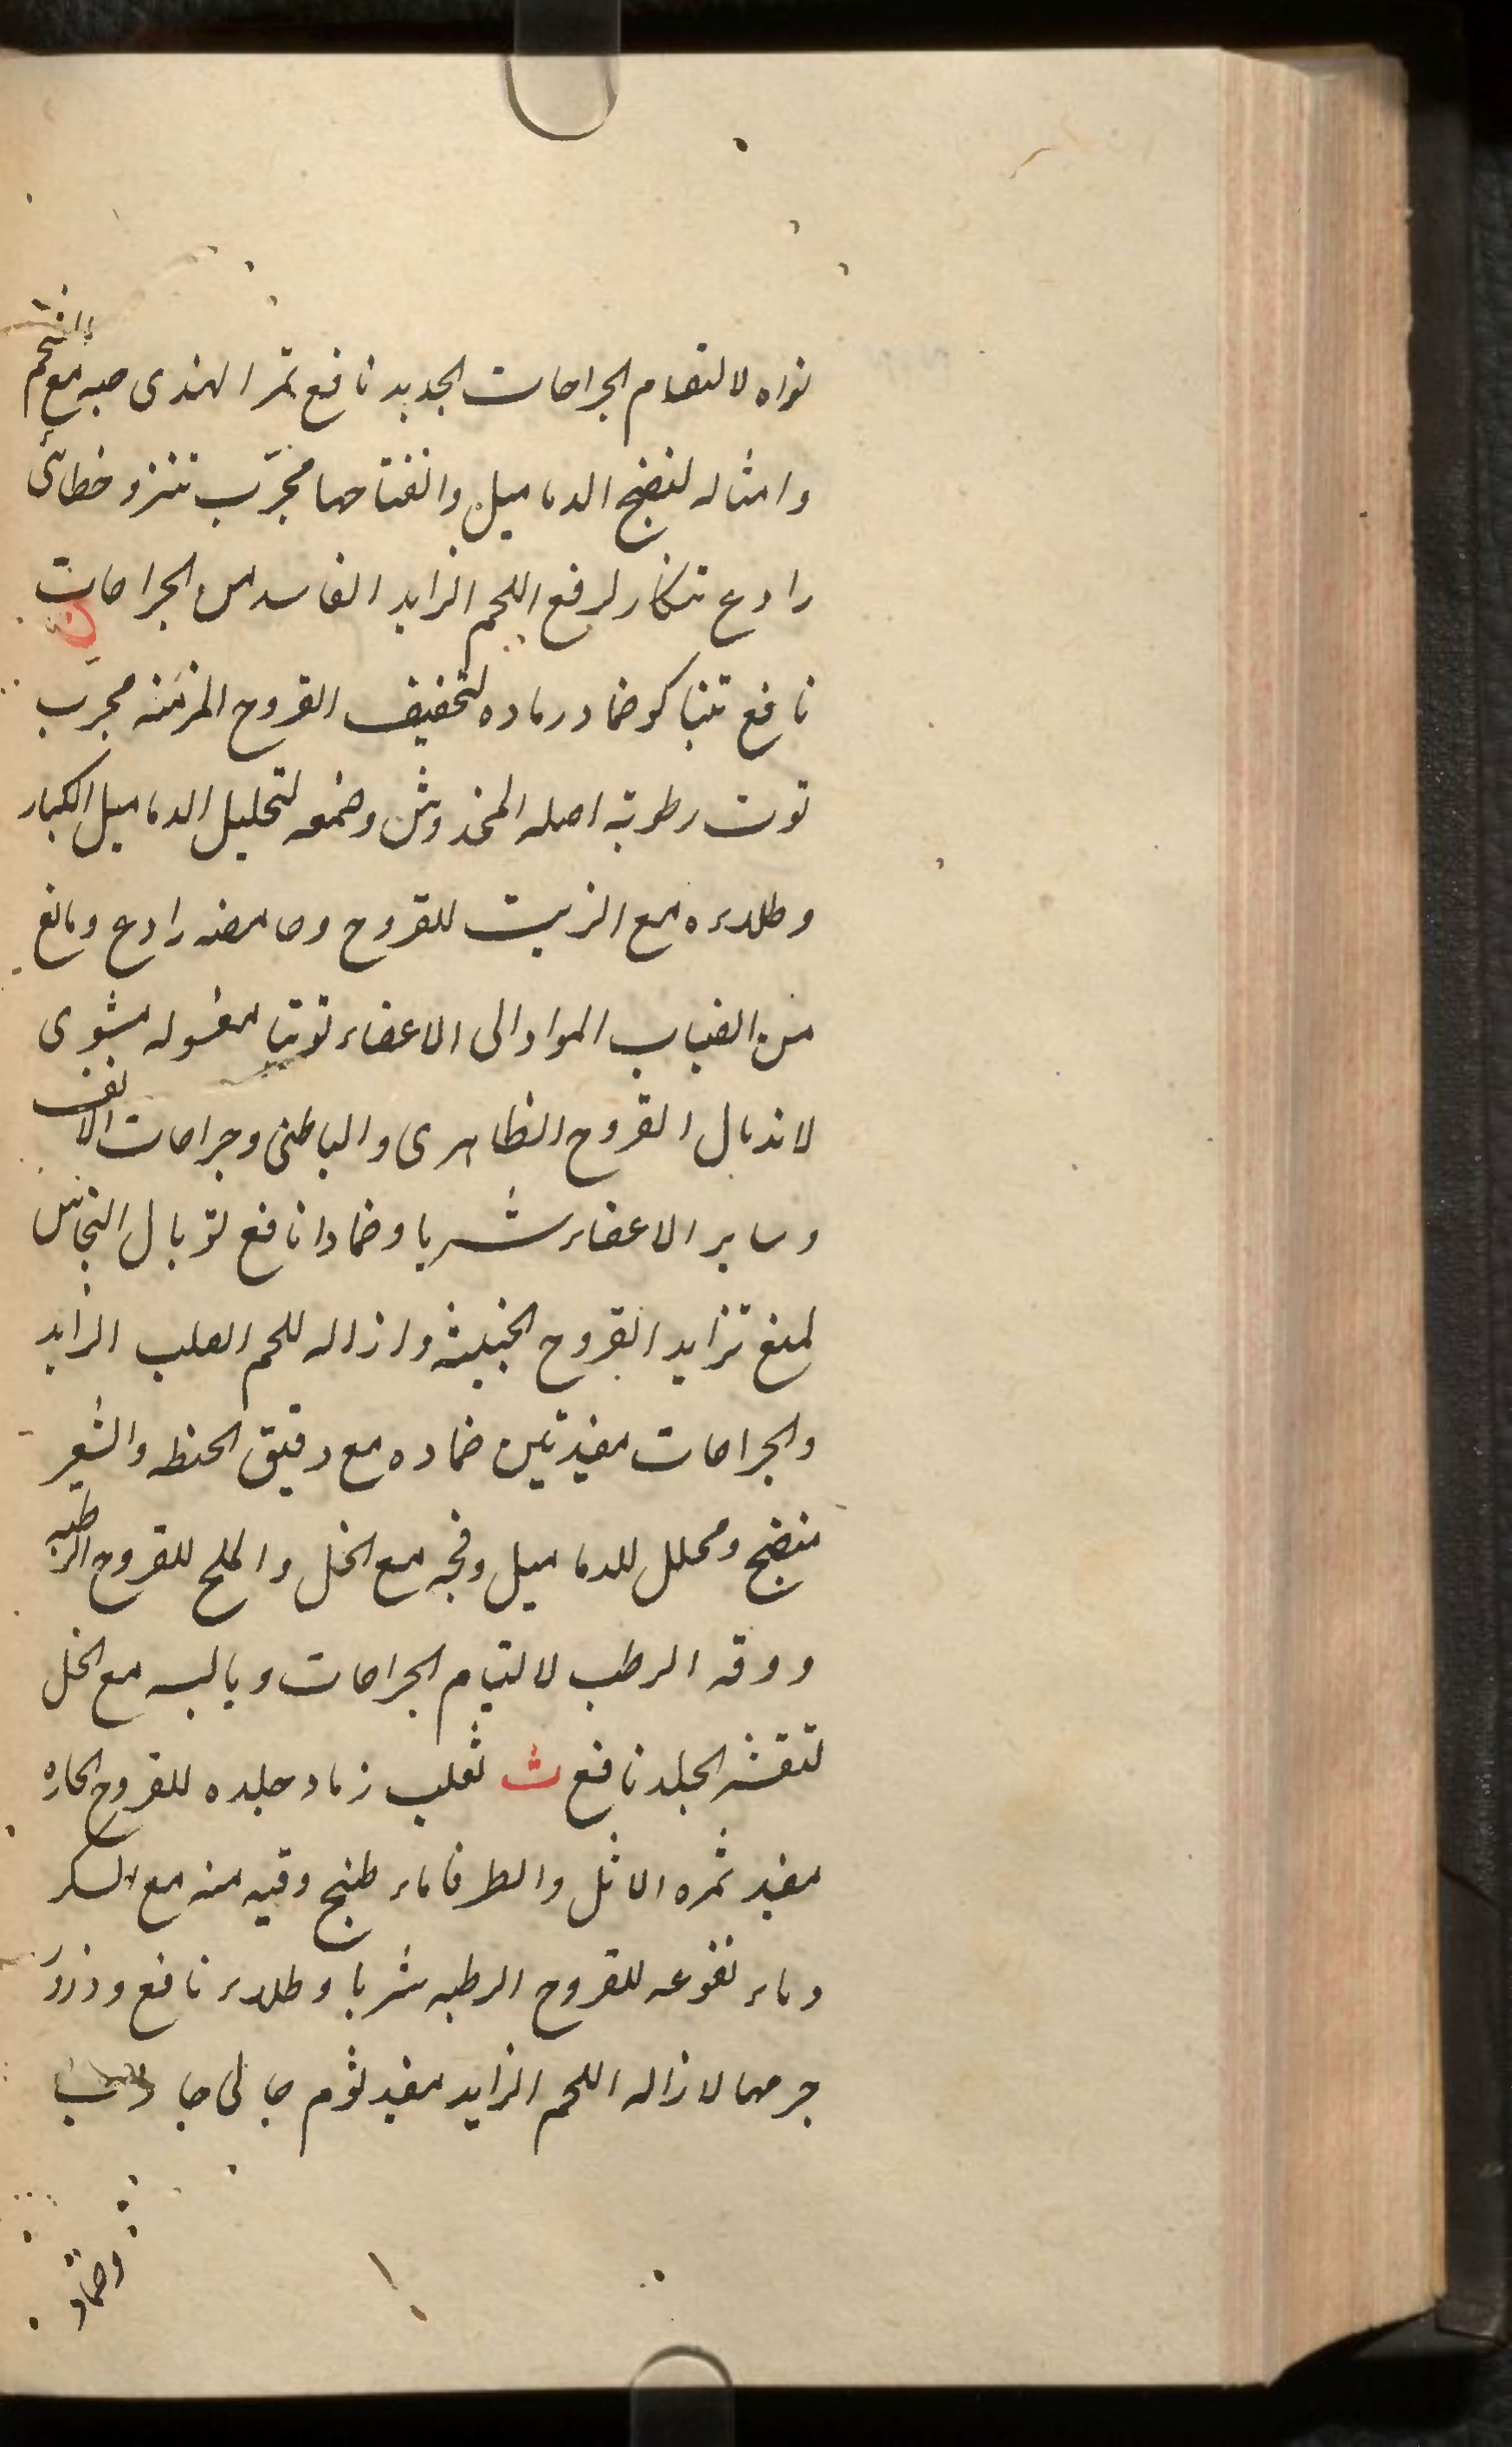 نواه لالتقام الجراحات الجدید نافع تمر الهندی حبه مع الشحم
وامثاله لنضج الدمامیل وانفتاحها مجرّب تنزو خطائی
رادع تنکار لرفع اللحم الزاید الفاسد من الجراحات
نافع تنباکو ضماد رماده لتخفیف القروح المزمنه مجرّب
توت رطوبة اصله المخدوش وضمغه لتحلیل الدمامیل الکبار
وطلاءه مع الزیت للقروح وحامضه رادع ومانع
من انصباب المواد الی الاعضاء توتیا مغسوله مشوی
لاندمال القروح الظاهری والباطنی وجراحات الانف
وسایر الاعضاء شربا وضمادا نافع توبال النحاس
لمنع تزاید القروح الخبیثه وازاله للحم الصلب الزاید
والجراحات مفید تین ضماده مع دقیق الحنطه والشعیر
منضج ومحلل للدمامیل وفجه مع الخل والملح للقروح الرطبه
وورقه الرطب لالتیام الجراحات ویابسه مع الخل
لتقشر الجلد نافع ث ثعلب زماد جلده للقروح الحاره
مفید ثمره الاثل والطرفا ماء طبخ وقیه منه مع السکر
وماء نقوعه للقروح الرطبه شربا وطلاء نافع وذرور
جرمها لازاله اللحم الزاید مفید ثوم جالی جاذب
وضماد